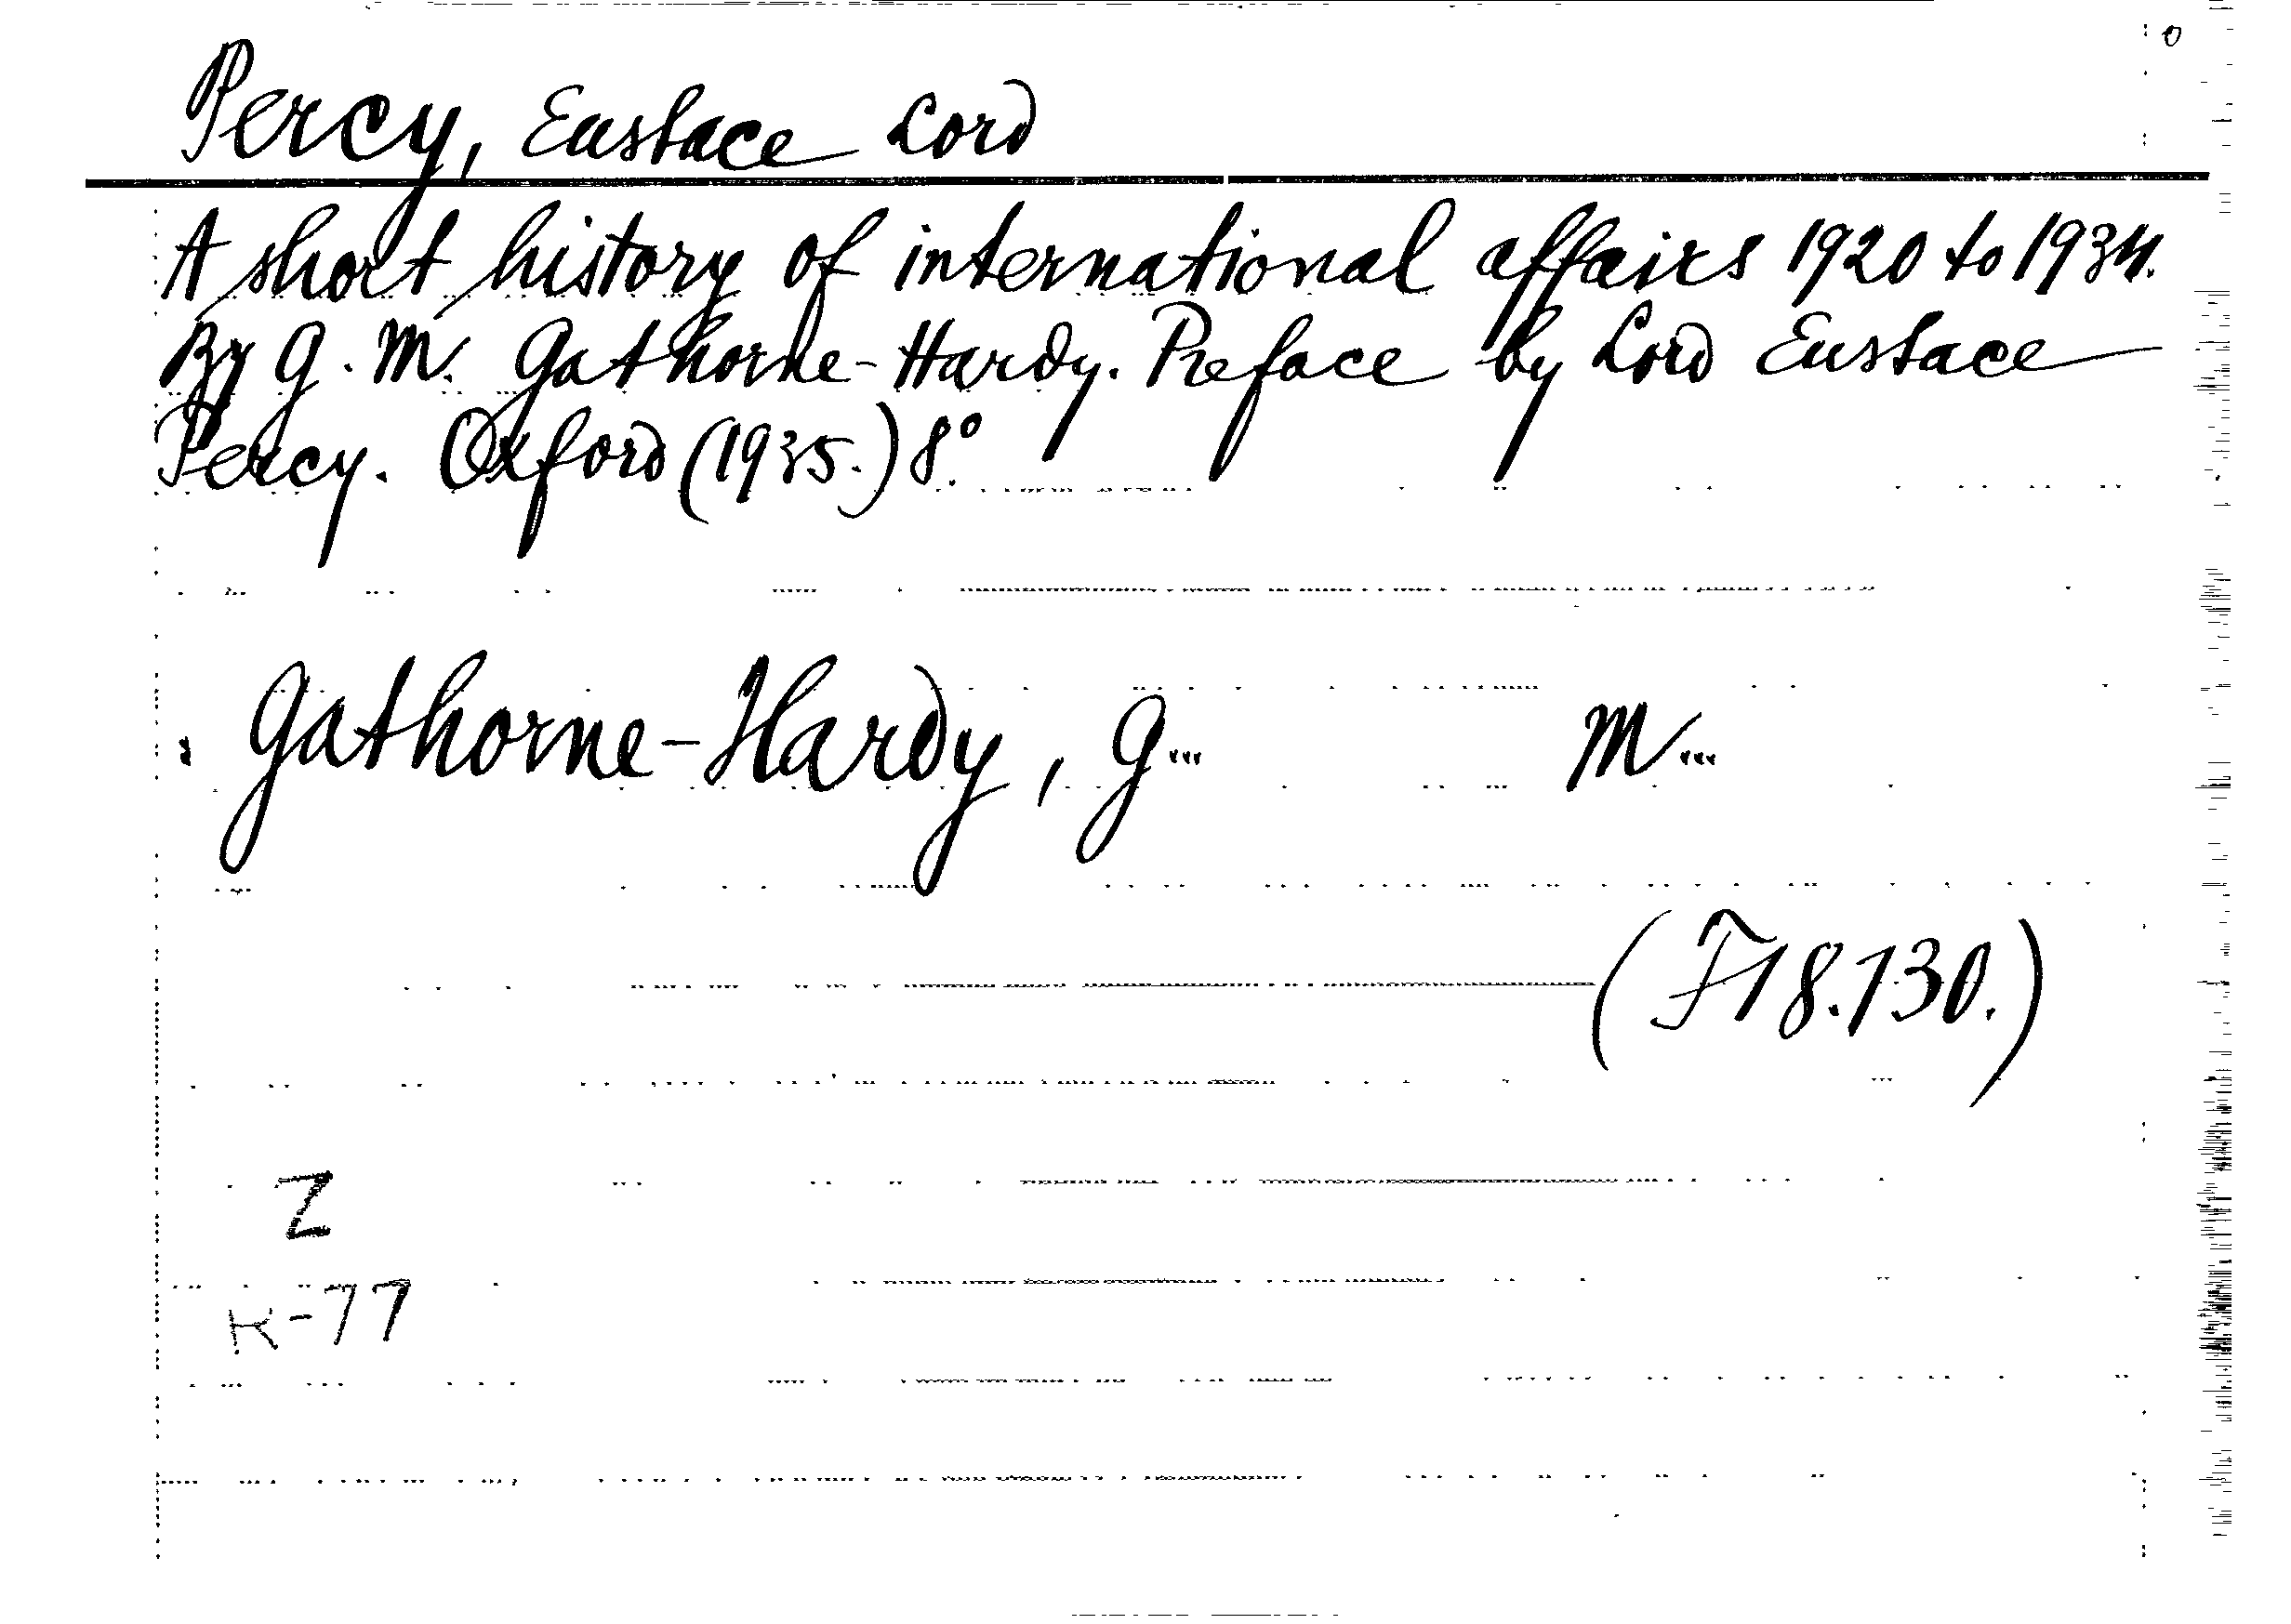 Percy, Eustace Lord
A short history of international affairs 1920 to 1934.
By G. M. Gathorne-Hardy. Preface by Lord Eustace
Percy. Oxford (1935.) 8°.
Gathorne-Hardy, G... M...
(F18.130.)
Z
K-77